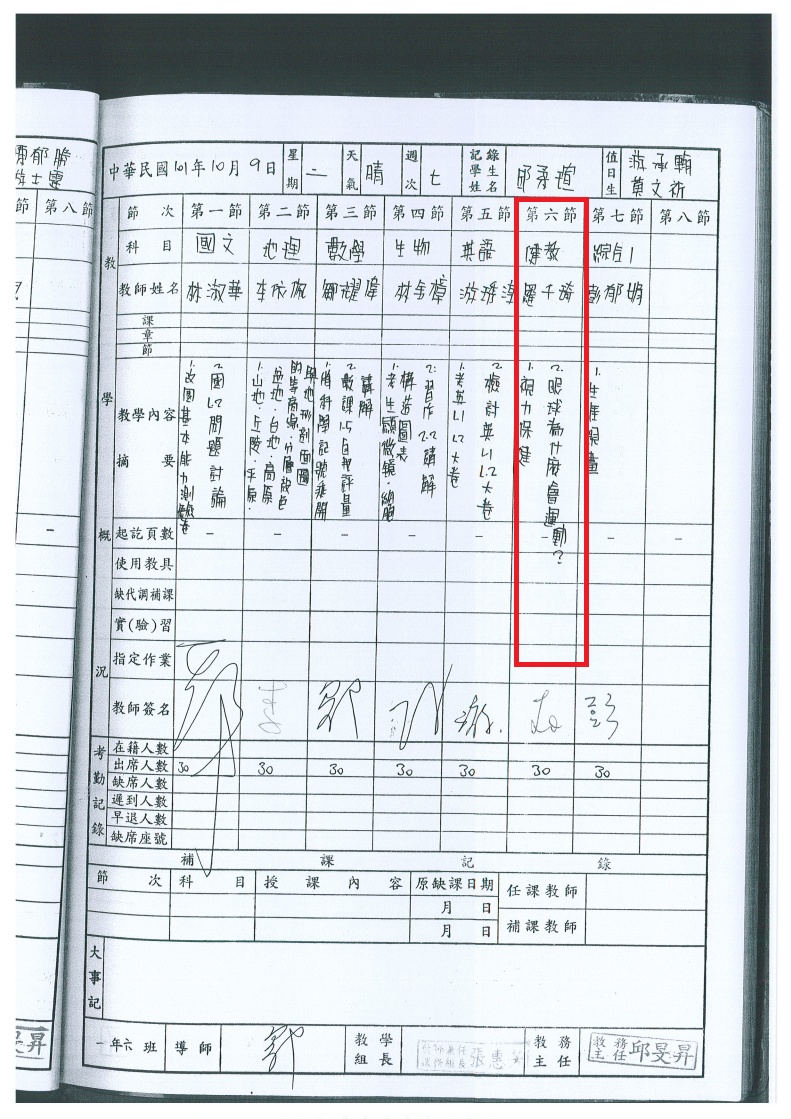 中華民國101年10月9日 星期 二 天氣 晴 週次 七 記錄學生姓名 邱 值日生 游承翰 黃文祈
節 次 第一節 第二節 第三節 第四節 第五節 第六節 第七節 第八節
科 目 國文 地理 數學 生物 英語 健教 綜合1
教師姓名 林淑華 李依佩 鄭耀偉 林
課
章
節
教學內容
摘 要
1.改國基本能力測驗卷
2.國L2問題討論
1.山地.丘陵.平原.
盆地.台地.高原
的等高線.分層設色
與地形剖面圖
1.將科學記號乘開
2.數課1-5自我評量
講解
1.考生顯微鏡.細胞
構造圖表
2.習作2-2講解
1.考英L1.L2大卷
2.檢討英L1.L2大卷
1.視力保健
2.眼球為什麼會運動?
1.生涯
起訖頁數 – – – – – – – –
使用教具
缺代調補課
實(驗)習
指定作業
教師簽名 彭
教學概況
考勤記錄
在籍人數
出席人數 30 30 30 30 30 30 30
缺席人數
遲到人數
早退人數
缺席座號
補 課 記 錄
節 次 科 目 授 課 內 容 原缺課日期 任課教師
月 日
月 日 補課教師
大事記
一年六班 導師 教學組長 張惠 教務主任 教務主任邱旻昇
節 第八節